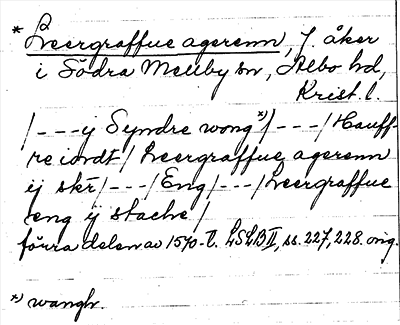 * Leergraffue agerenn, f. åker
i Södra Mellby sn, Albo hd,
Krist. l.
/---ij Syndre wong*)/---/Hauff-
re iordt/ Leergraffue agerenn
ij skr̄/---/Eng/---/Leergraffue
eng ij stache/
förra delen av 1570-t. LSLB II, ss. 227, 228. orig.
*) wangh.